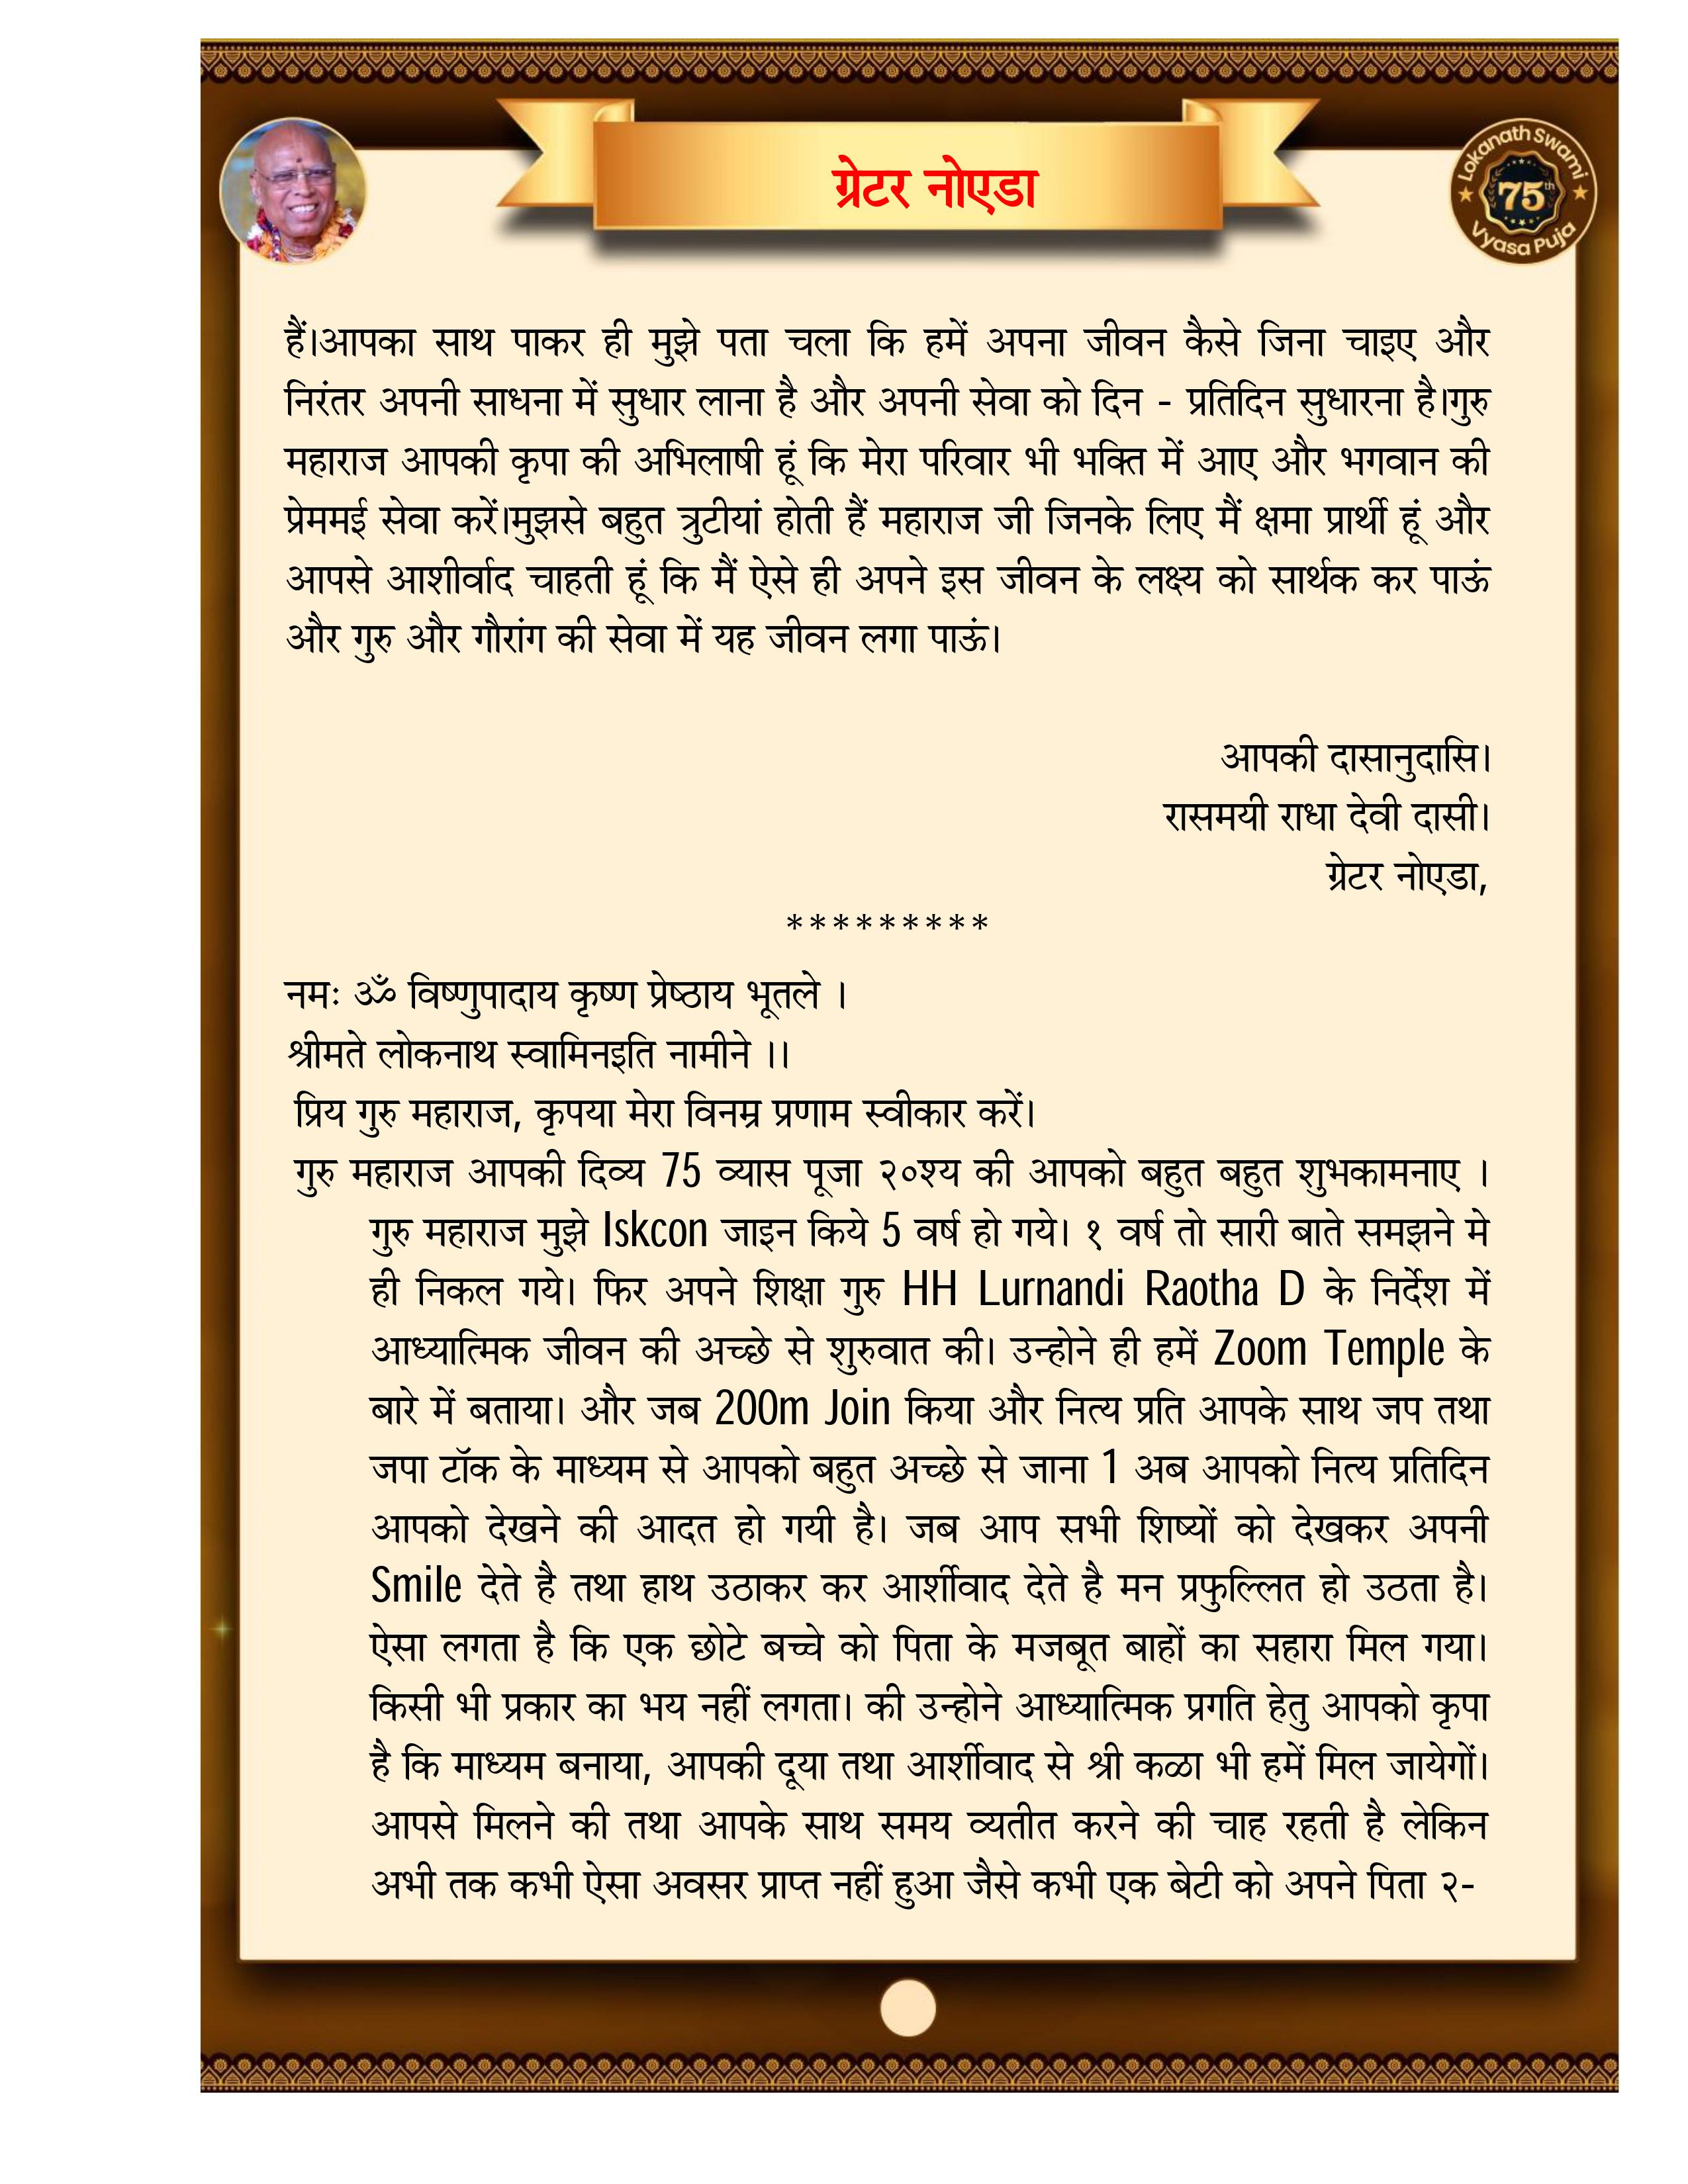 ग्रेटर नोएडा
Lokanath Swami
75th
Vyasa Puja
हैं।आपका साथ पाकर ही मुझे पता चला कि हमें अपना जीवन कैसे जिना चाइए और
निरंतर अपनी साधना में सुधार लाना है और अपनी सेवा को दिन - प्रतिदिन सुधारना है।गुरु
महाराज आपकी कृपा की अभिलाषी हूं कि मेरा परिवार भी भक्ति में आए और भगवान की
प्रेममई सेवा करें।मुझसे बहुत त्रुटीयां होती हैं महाराज जी जिनके लिए मैं क्षमा प्रार्थी हूं और
आपसे आशीर्वाद चाहती हूं कि मैं ऐसे ही अपने इस जीवन के लक्ष्य को सार्थक कर पाऊं
और गुरु और गौरांग की सेवा में यह जीवन लगा पाऊं।
आपकी दासानुदासि।
रासमयी राधा देवी दासी।
ग्रेटर नोएडा,
*********
नमः ॐ विष्णुपादाय कृष्ण प्रेष्ठाय भूतले ।
श्रीमते लोकनाथ स्वामिनइति नामीने ।।
प्रिय गुरु महाराज, कृपया मेरा विनम्र प्रणाम स्वीकार करें।
गुरु महाराज आपकी दिव्य 75 व्यास पूजा २०श्य की आपको बहुत बहुत शुभकामनाए ।
गुरु महाराज मुझे Iskcon जाइन किये 5 वर्ष हो गये। १ वर्ष तो सारी बाते समझने मे
ही निकल गये। फिर अपने शिक्षा गुरु HH Lurnandi Raotha D के निर्देश में
आध्यात्मिक जीवन की अच्छे से शुरुवात की। उन्होने ही हमें Zoom Temple के
बारे में बताया। और जब 200m Join किया और नित्य प्रति आपके साथ जप तथा
जपा टॉक के माध्यम से आपको बहुत अच्छे से जाना 1 अब आपको नित्य प्रतिदिन
आपको देखने की आदत हो गयी है। जब आप सभी शिष्यों को देखकर अपनी
Smile देते है तथा हाथ उठाकर कर आर्शीवाद देते है मन प्रफुल्लित हो उठता है।
ऐसा लगता है कि एक छोटे बच्चे को पिता के मजबूत बाहों का सहारा मिल गया।
किसी भी प्रकार का भय नहीं लगता। की उन्होने आध्यात्मिक प्रगति हेतु आपको कृपा
है कि माध्यम बनाया, आपकी दूया तथा आर्शीवाद से श्री कळा भी हमें मिल जायेगों।
आपसे मिलने की तथा आपके साथ समय व्यतीत करने की चाह रहती है लेकिन
अभी तक कभी ऐसा अवसर प्राप्त नहीं हुआ जैसे कभी एक बेटी को अपने पिता २-